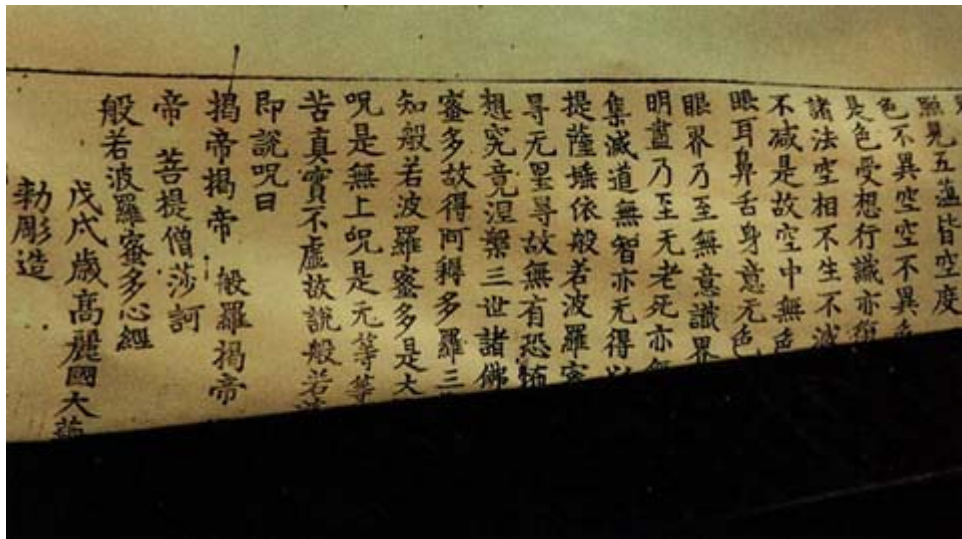 照見五蘊皆空度
色不異空空不異色
是色受想行識亦復
諸法空相不生不滅
不減是故空中無色
眼耳鼻舌身意无色
眼界乃至無意識界
明盡乃至无老死亦無
集滅道無智亦无得以
提薩埵依般若波羅蜜
㝵无罣㝵故無有恐怖
想究竟涅槃三世諸佛
蜜多故得阿耨多羅三
知般若波羅蜜多是大
呪是無上呪是无等等
苦真實不虛故說般若
即說呪曰
揭帝揭帝 般羅揭帝
帝 菩提僧莎訶
般若波羅蜜多心經
戊戌歲高麗國大藏
勅彫造